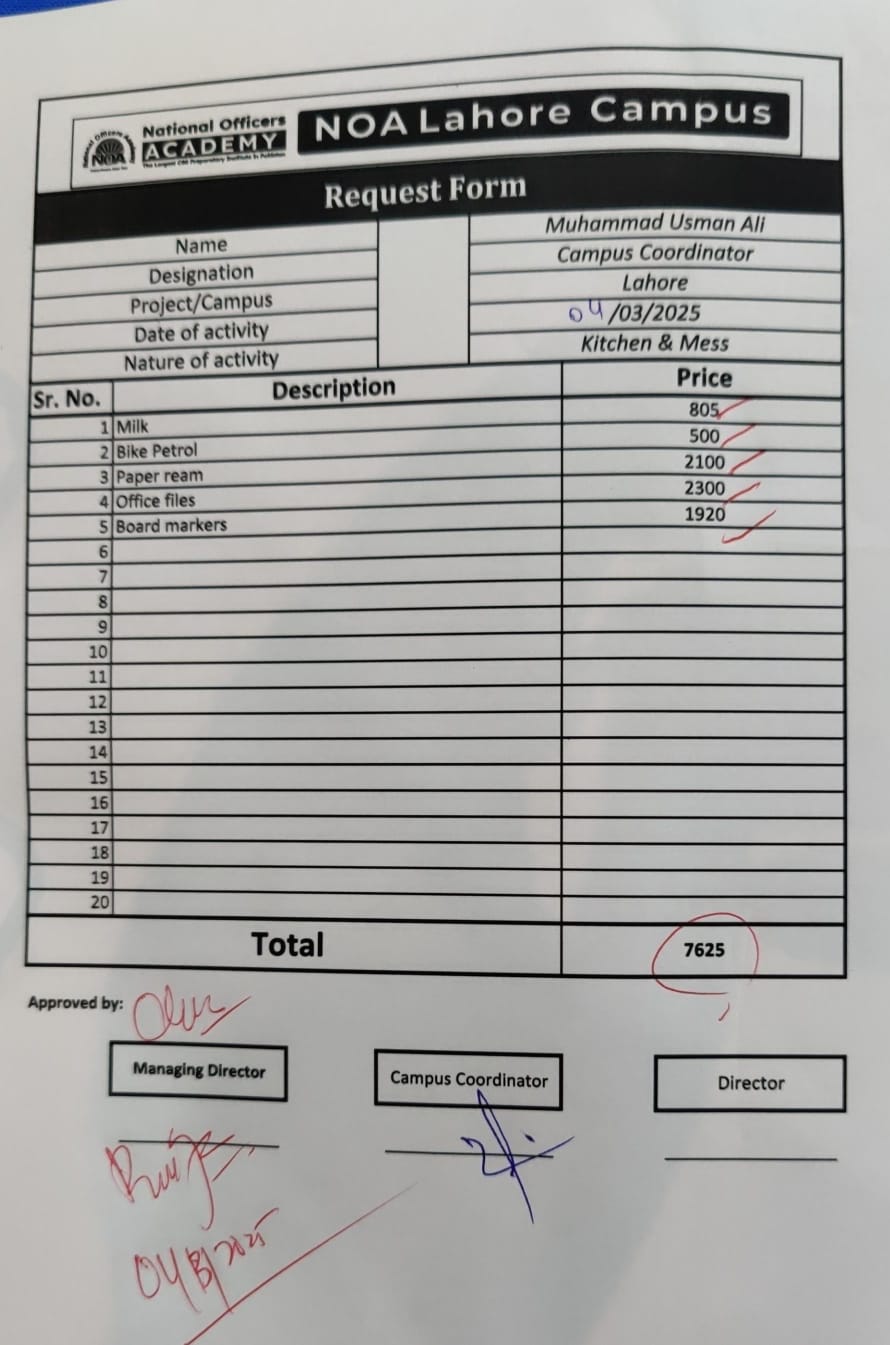 National Officers
ACADEMY
NOA
NOA Lahore Campus
Request Form
Name Muhammad Usman Ali
Designation Campus Coordinator
Project/Campus Lahore
Date of activity 04/03/2025
Nature of activity Kitchen & Mess
Sr. No. Description Price
1 Milk 805
2 Bike Petrol 500
3 Paper ream 2100
4 Office files 2300
5 Board markers 1920
6
7
8
9
10
11
12
13
14
15
16
17
18
19
20
Total 7625
Approved by:
Managing Director Campus Coordinator Director